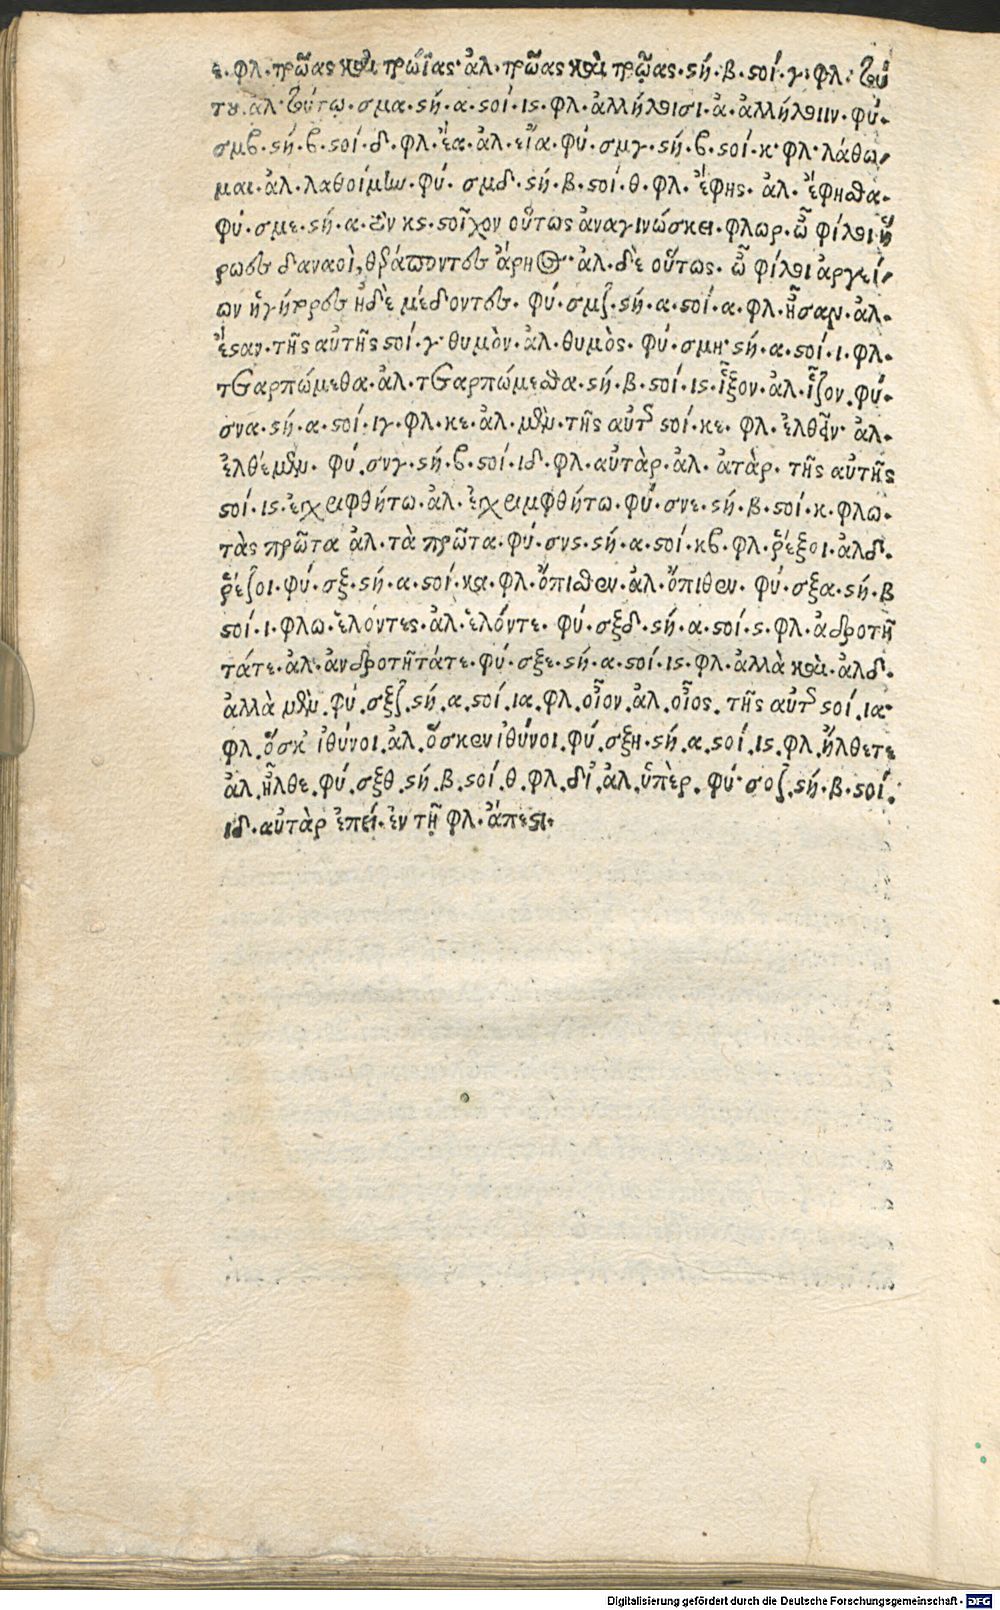 ε· φλ· τρῶας καὶ τρώϊας· ἀλ· τρῶας καὶ τρῳᾶς· ςή· β· ςοί· γ· φλ· τού
του· ἀλ· τούτῳ· σμα· ςή· α· ςοί· ις· φλ· ἀλλήλοισι· ἀ· ἀλλήλοιιν· φύ·
σμβ· ςή· β· ςοί· δ· φλ· ἔα· ἀλ· εἴα· φύ· σμγ· ςή· β· ςοί· κ· φλ· λάθω/
μαι· ἀλ· λαθοίμην· φύ· σμδ· ςή· β· ςοί· θ· φλ· ἔφης· ἀλ· ἔφησθα·
φύ· σμε· ςή· α· τὸν κς· ςοῖχον οὕτως ἀναγινώσκει· φλωρ· ὦ φίλοι ἥ
ρωες δαναοὶ, θεράποντες ἄρηος· ἀλ· δὲ οὕτως· ὦ φίλοι ἀργεί/
ων ἡγήτορες ἠδὲ μέδοντες· φύ· σμζ· ςή· α· ςοί· α· φλ· ἦσαν· ἀλ·
ἔσαν· τῆς αὐτῆς ςοί· γ· θυμὸν· ἀλ· θυμὸς· φύ· σμη· ςή· α· ςοί· ι· φλ·
τεταρπώμεθα· ἀλ· τεταρπώμεσθα· ςή· β· ςοί· ις· ἷξον· ἀλ· ἷζον· φύ·
σνα· ςή· α· ςοί· ιγ· φλ· κε· ἀλ· μὲν· τῆς αὐτῆς ςοί· κε· φλ· ἐλθεῖν· ἀλ·
ἐλθέμεν· φύ· σνγ· ςή· β· ςοί· ιδ· φλ· αὐτὰρ· ἀλ· ἀτὰρ· τῆς αὐτῆς
ςοί· ις· ἐχριφθήτω· ἀλ· ἐχριμφθήτω· φύ· σνε· ςή· β· ςοί· κ· φλω·
τὰς πρῶτα ἀλ· τὰ πρῶτα· φύ· σνς· ςή· α· ςοί· κβ· φλ· ῥέξοι· ἀλδ·
ῥέζοι· φύ· σξ· ςή· α· ςοί· κα· φλ· ὄπισθεν· ἀλ· ὄπιθεν· φύ· σξα· ςή· β
ςοί· ι· φλω· ἑλόντες· ἀλ· ἑλόντε· φύ· σξδ· ςή· α· ςοί· ς· φλ· ἀδροτῆ
τάτε· ἀλ· ἀνδροτῆτάτε· φύ· σξε· ςή· α· ςοί· ις· φλ· ἀλλὰ καὶ· ἀλδ·
ἀλλὰ μὲν· φύ· σξζ· ςή· α· ςοί· ια· φλ· οἷον· ἀλ· οἷος· τῆς αὐτῆς ςοί· ια·
φλ· ὅσκ' ἰθύνοι· ἀλ· ὅσκεν ἰθύνοι· φύ· σξη· ςή· α· ςοί· ις· φλ· ἤλθετε
ἀλ· ἦλθε· φύ· σξθ· ςή· β· ςοί· θ· φλ· δἰ· ἀλ· ὑπὲρ· φύ· σοζ· ςή· β· ςοί·
ιδ· αὐτὰρ ἐπεί· ἐν τῇ φλ· ἄπεςι·
Digitalisierung gefördert durch die Deutsche Forschungsgemeinschaft - DFG